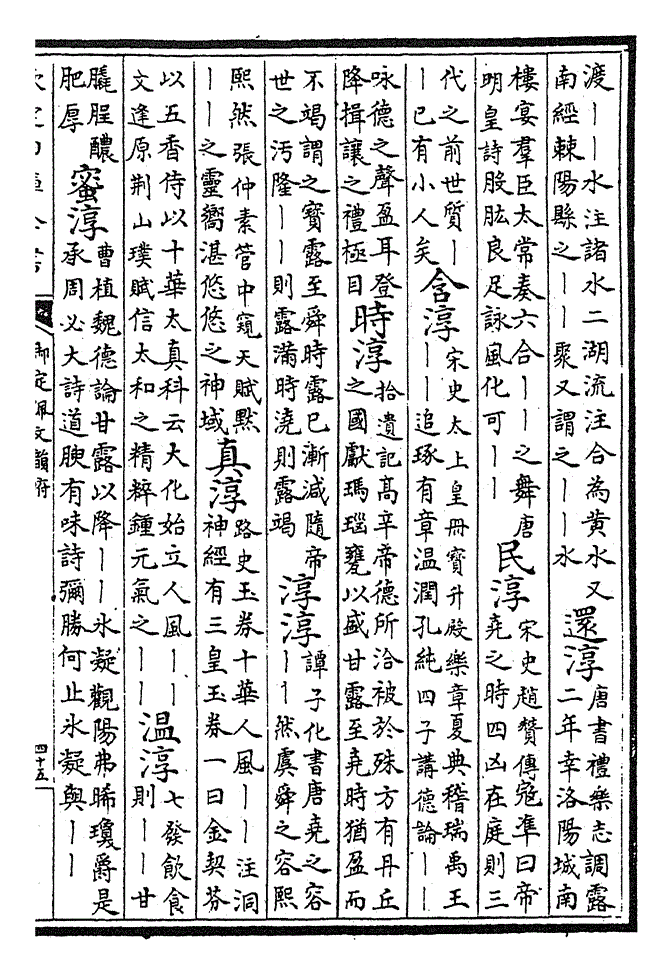 渡||水注諸水二湖流注合為黄水又
南經棘陽縣之||聚又謂之||水
還淳
唐書禮樂志調露
二年幸洛陽城南
樓宴羣臣太常奏六合||之舞唐
明皇詩股肱良足詠風化可||
民淳
宋史趙贊傳宼準曰帝
堯之時四凶在庭則三
代之前世質|
|已有小人矣
含淳
宋史太上皇冊寳升殿樂章夏典稽瑞禹王
||追琢有章温潤孔純四子講德論||
咏德之聲盈耳登
降揖讓之禮極目
時淳
拾遺記髙辛帝德所洽被於殊方有丹丘
之國獻瑪瑙甕以盛甘露至堯時猶盈而
不竭謂之寳露至舜時露已漸減隨帝
世之汚隆||則露滿時澆則露竭
淳淳
譚子化書唐堯之容
||然虞舜之容熙
熙然張仲素管中窺天賦黙
||之靈嚮湛悠悠之神域
真淳
路史玉券十華人風||注洞
神經有三皇玉券一曰金契芬
以五香侍以十華太真科云大化始立人風||
文逢原荆山璞賦信太和之精粹鍾元氣之||
温淳
七發飲食
則||甘
膬脭醲
肥厚
蜜淳
曹植魏德論甘露以降||氷凝觀陽弗晞瓊爵是
承周必大詩道腴有味詩彌勝何止氷凝與||
御定佩文韻府
四十五